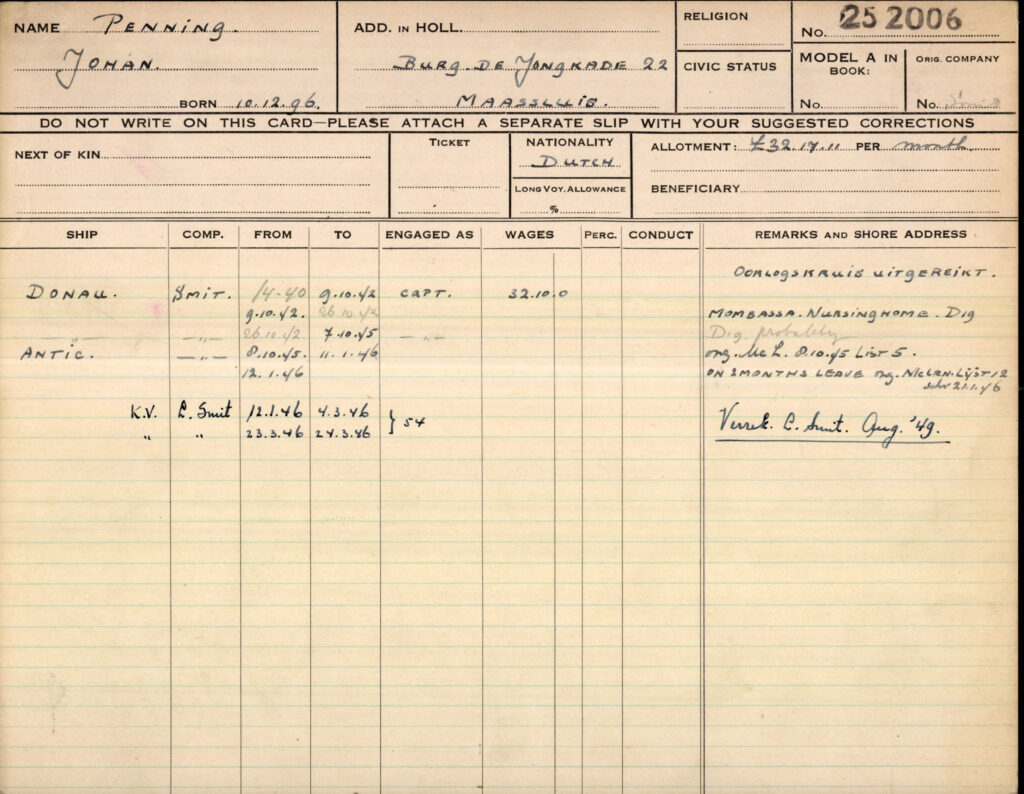 NAME Penning.
Johan.
BORN 10.12.96.
ADD. IN HOLL.
Burg. De Jongkade 22
Maassluis.
RELIGION
CIVIC STATUS
No. 25 2006
MODEL A IN BOOK:
No.
ORIG. COMPANY
No. Smit
DO NOT WRITE ON THIS CARD—PLEASE ATTACH A SEPARATE SLIP WITH YOUR SUGGESTED CORRECTIONS
NEXT OF KIN
TICKET
NATIONALITY
Dutch
LONG VOY. ALLOWANCE
%
ALLOTMENT: £32.17.11 PER month
BENEFICIARY
SHIP COMP. FROM TO ENGAGED AS WAGES PERC. CONDUCT REMARKS AND SHORE ADDRESS
Oorlogskruis uitgereikt.
Donau. Smit. 14-40 9.10.42 Capt. 32.10.0
9.10.42. 26.10.42 Mombassa. Nursinghome. Dig
" —"— 26.10.42. 7.10.45 —"— Dig probably
Antic. —"— 8.10.45. 11.1.46 org. McL. 8.10.45 List 5.
12.1.46 on 2 months leave org. Lijst 12
21.1.46
K.V. L. Smit 12.1.46 4.3.46 } 54
" " 23.3.46 24.3.46
Verrek. L. Smit. Aug. '49.